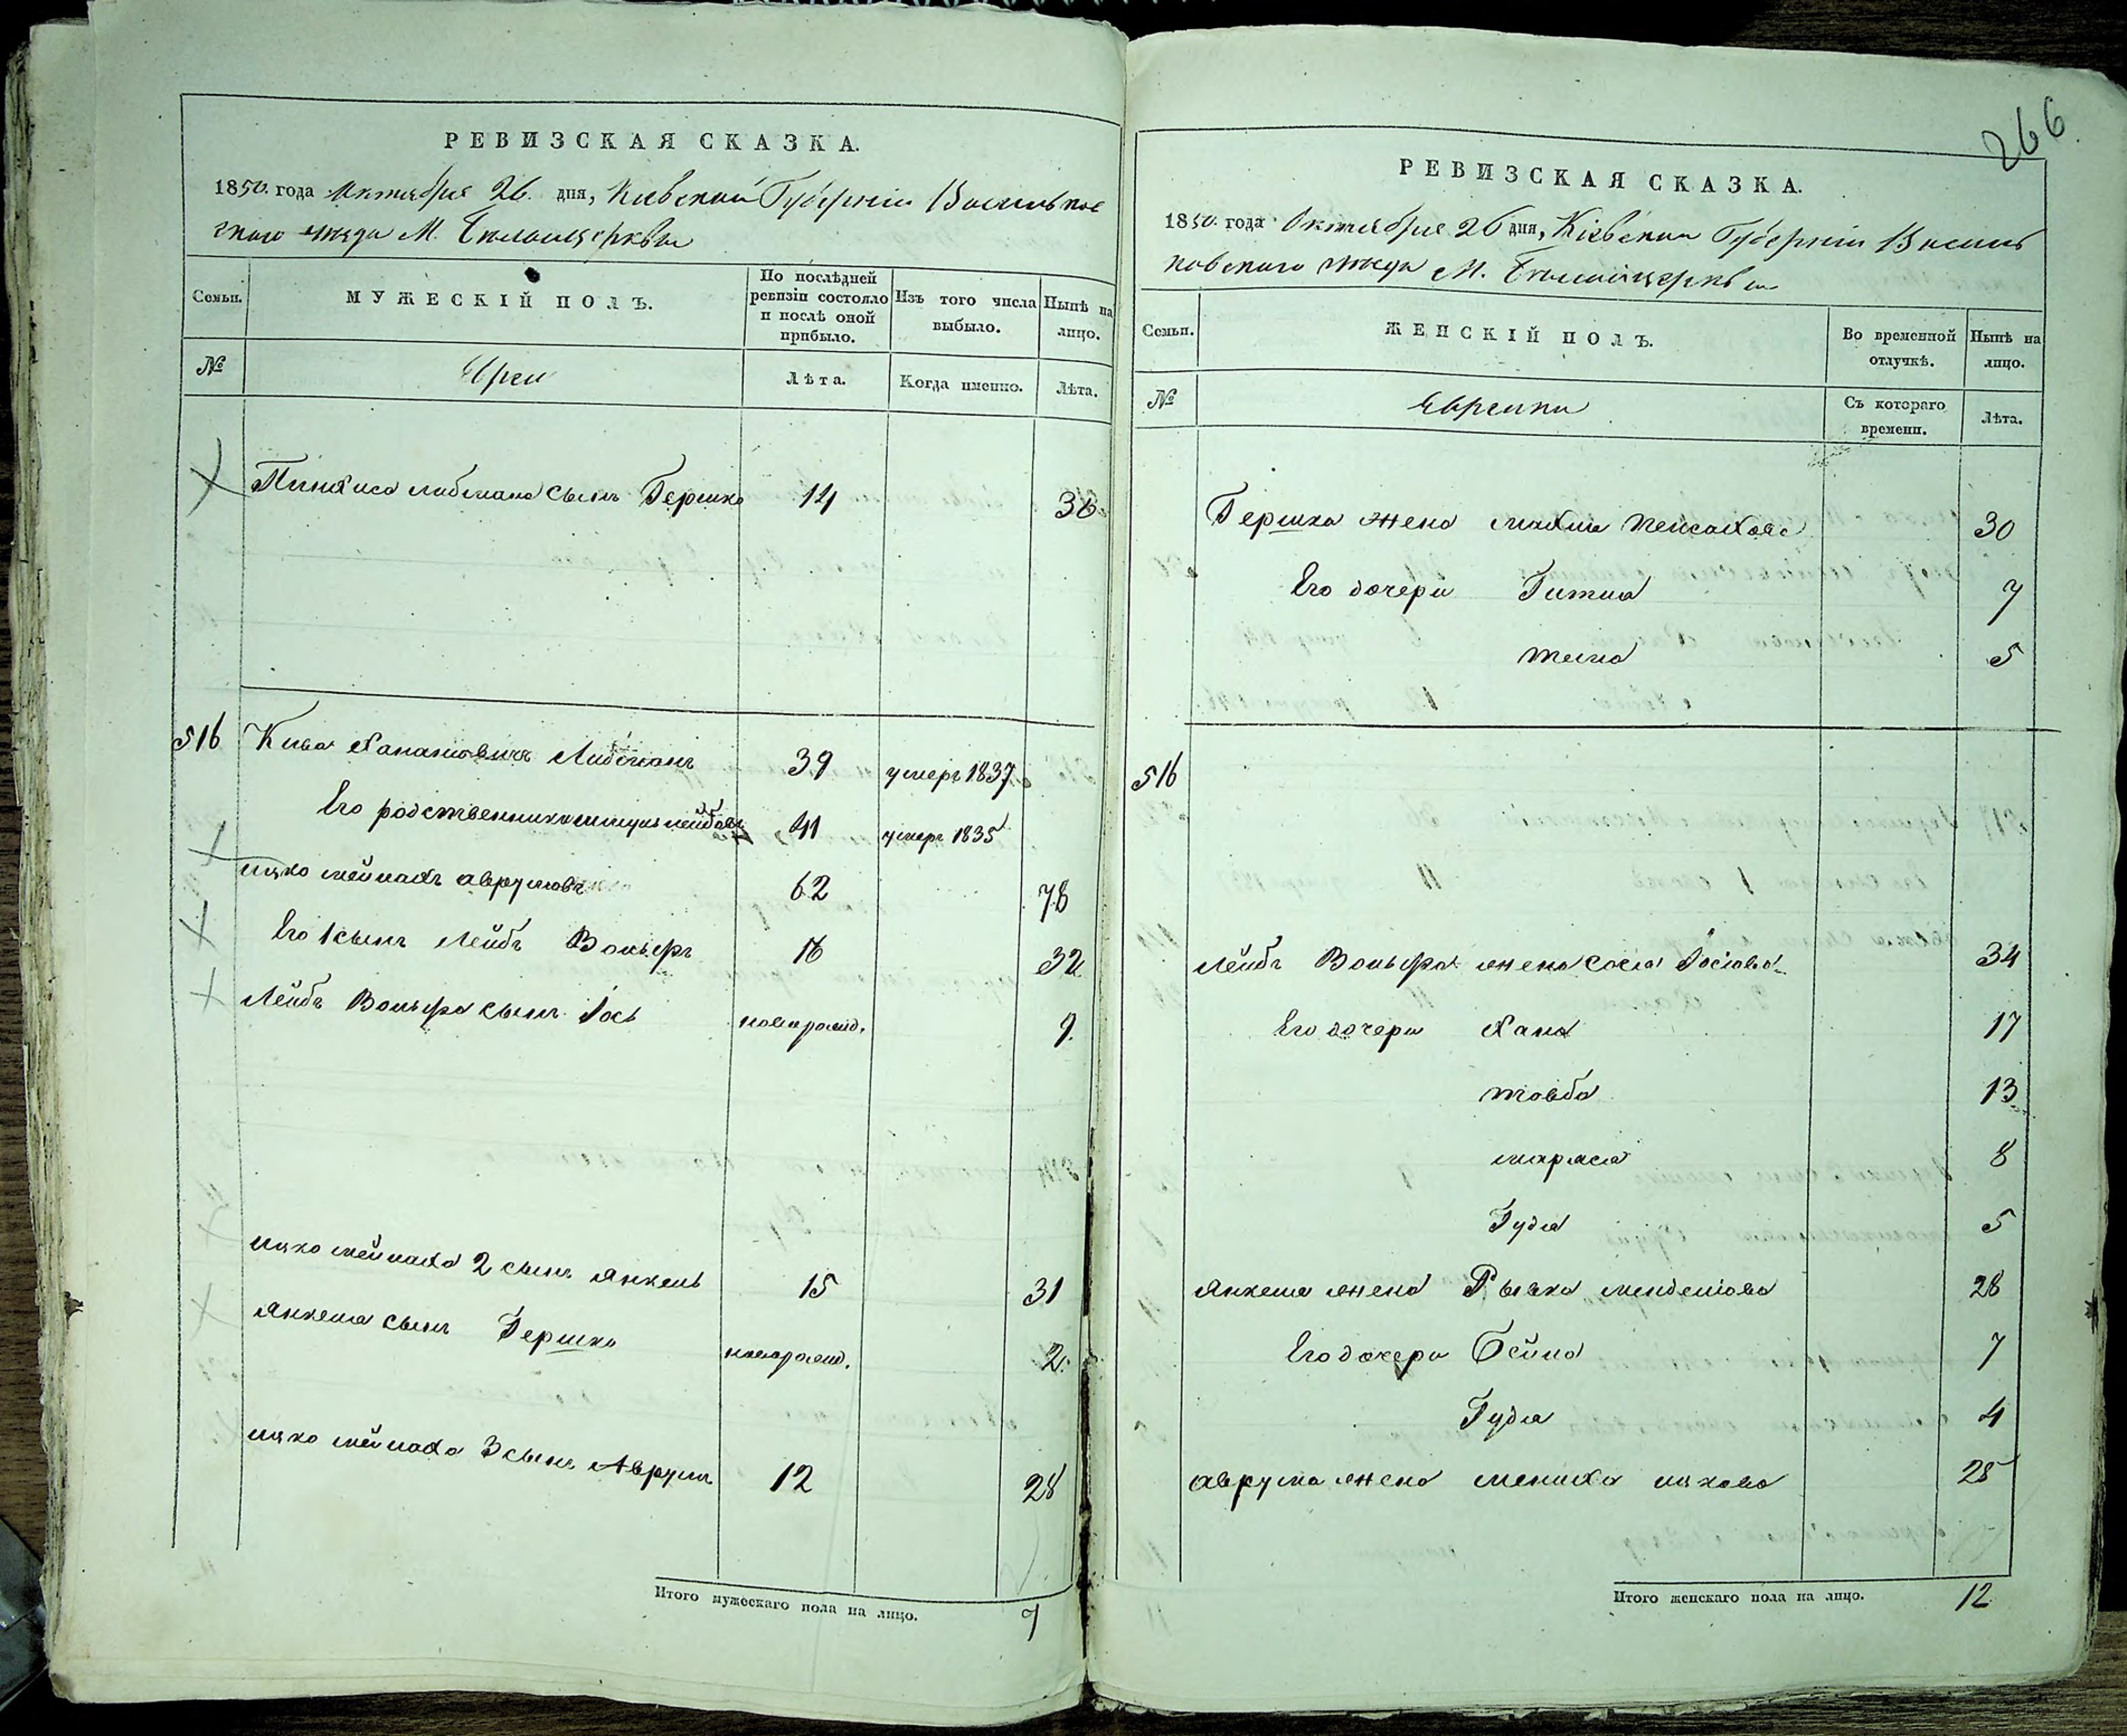 РЕВИЗСКАЯ СКАЗКА.
1850. года Октября 26. дня, Кіевской Губерніи Васильков
скаго уезда М. Белоцеркви
Семьи. МУЖЕСКІЙ ПОЛЪ. По послѣдней ревизіи состояло и послѣ оной прибыло. Изъ того числа выбыло. Нынѣ на лицо.
№ Евреи Лѣта. Когда именно. Лѣта.
Пинхаса Либмана сынъ Гершко 14 30
516 Кива Ханановичъ Либманъ 39 умеръ 1837
Его родственникъ лейбовъ 41 умеръ 1835
Ицко Мейнахъ Аврумовъ 62 78
Его 1 сынъ Лейбъ Вольфъ 16 32
Лейбъ Вольфа сынъ Іось новорожд. 9.
Ицко Мейнаха 2 сынъ Янкель 15 31
Янкеля сынъ Гершко новорожд. 2.
Ицко Мейнаха 3 сынъ Аврумъ 12 28
Итого мужескаго пола на лицо. 7
266
РЕВИЗСКАЯ СКАЗКА.
1850. года Октября 26 дня, Кіевской Губерніи Василь
ковскаго уезда М. Белоцеркви
Семьи. ЖЕНСКІЙ ПОЛЪ. Во временной отлучкѣ. Нынѣ на лицо.
№ Еврейки Съ котораго времени. Лѣта.
Гершка жена Малка Пейсахова 30
Его дочери Гитля 7
Тема 5
516
Лейбъ Вольфа жена Сося Іосіова 34
Его дочери Хана 17
Товба 13
Маряся 8
Гудя 5
Янкеля жена Рывка Менделіова 28
Его дочери Бейла 7
Гудя 4
Аврума жена Мениха Ицкова 25
Итого женскаго пола на лицо. 12